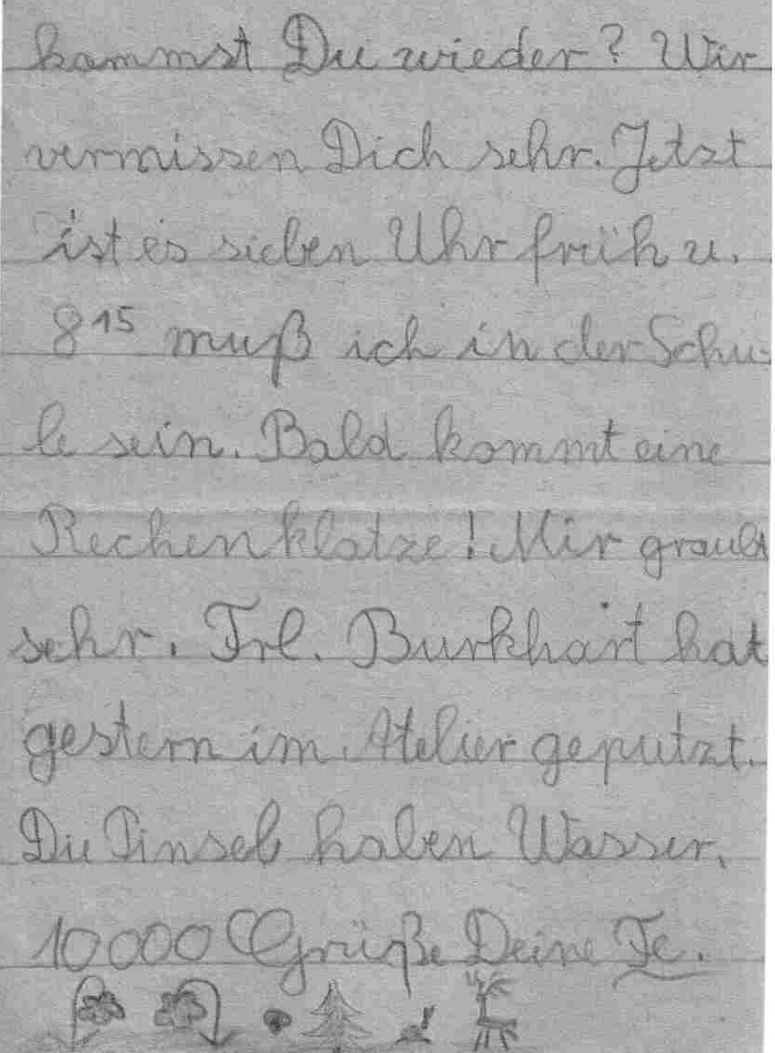 kommst Du wieder? Wir
vermissen Dich sehr. Jetzt
ist es sieben Uhr früh u.
8¹⁵ muß ich in der Schu-
le sein. Bald kommt eine
Rechenklatze! Mir grault
sehr. Frl. Burkhart hat
gestern im Atelier geputzt.
Die Pinsel haben Wasser.
10000 Grüße Deine Te.